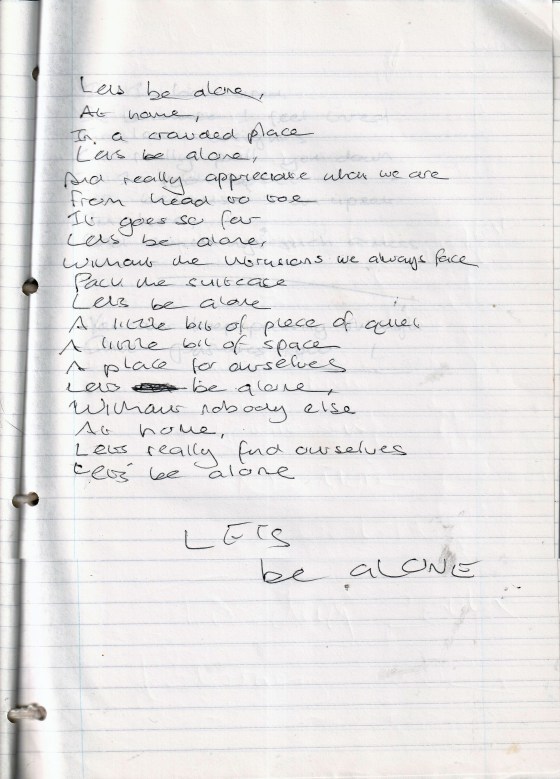 Lets be alone,
At home,
In a crowded place
Lets be alone,
And really appreciate whom we are
From head to toe
It goes so far
Lets be alone,
Without the intrusions we always face
Pack the suitcase
Lets be alone
A little bit of piece of quiet
A little bit of space
A place for ourselves
Lets be alone,
Without nobody else
At home,
Lets really find ourselves
Lets be alone
LETS
be ALONE